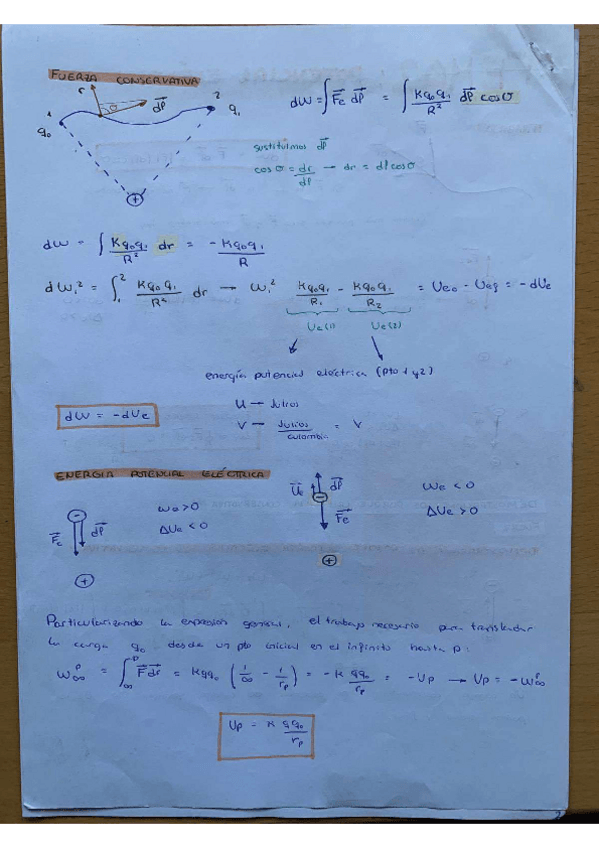 FUERZA CONSERVATIVA
r θ dl⃗
1 q₀ 2 q₁
+
dW = ∫ F⃗e dl⃗ = ∫ Kq₀q₁/R² dl⃗ cosθ
sustituimos dl⃗
cosθ = dr/dl → dr = dl cosθ
dW = ∫ Kq₀q₁/R² dr = - Kq₀q₁/R
dW₁² = ∫₁² Kq₀q₁/R² dr → W₁² Kq₀q₁/R₁ - Kq₀q₁/R₂ = Ue₀ - Uef = -dUe
Ue(1) Ue(2)
energía potencial eléctrica (pto 1 y 2)
dW = -dUe
U → Julios
V → Julios/culombio = V
ENERGIA POTENCIAL ELÉCTRICA
- F⃗e dl⃗ +
We > 0
ΔUe < 0
U⃗e dl⃗ - F⃗e +
We < 0
ΔUe > 0
Particularizando la expresión general, el trabajo necesario para transladar
la carga q₀ desde un pto inicial en el infinito hasta p:
W∞ᴾ = ∫∞ᴾ F⃗ dr⃗ = Kqq₀ (1/∞ - 1/rp) = -K qq₀/rp = -Up → Up = -W∞ᴾ
Up = K qq₀/rp
2